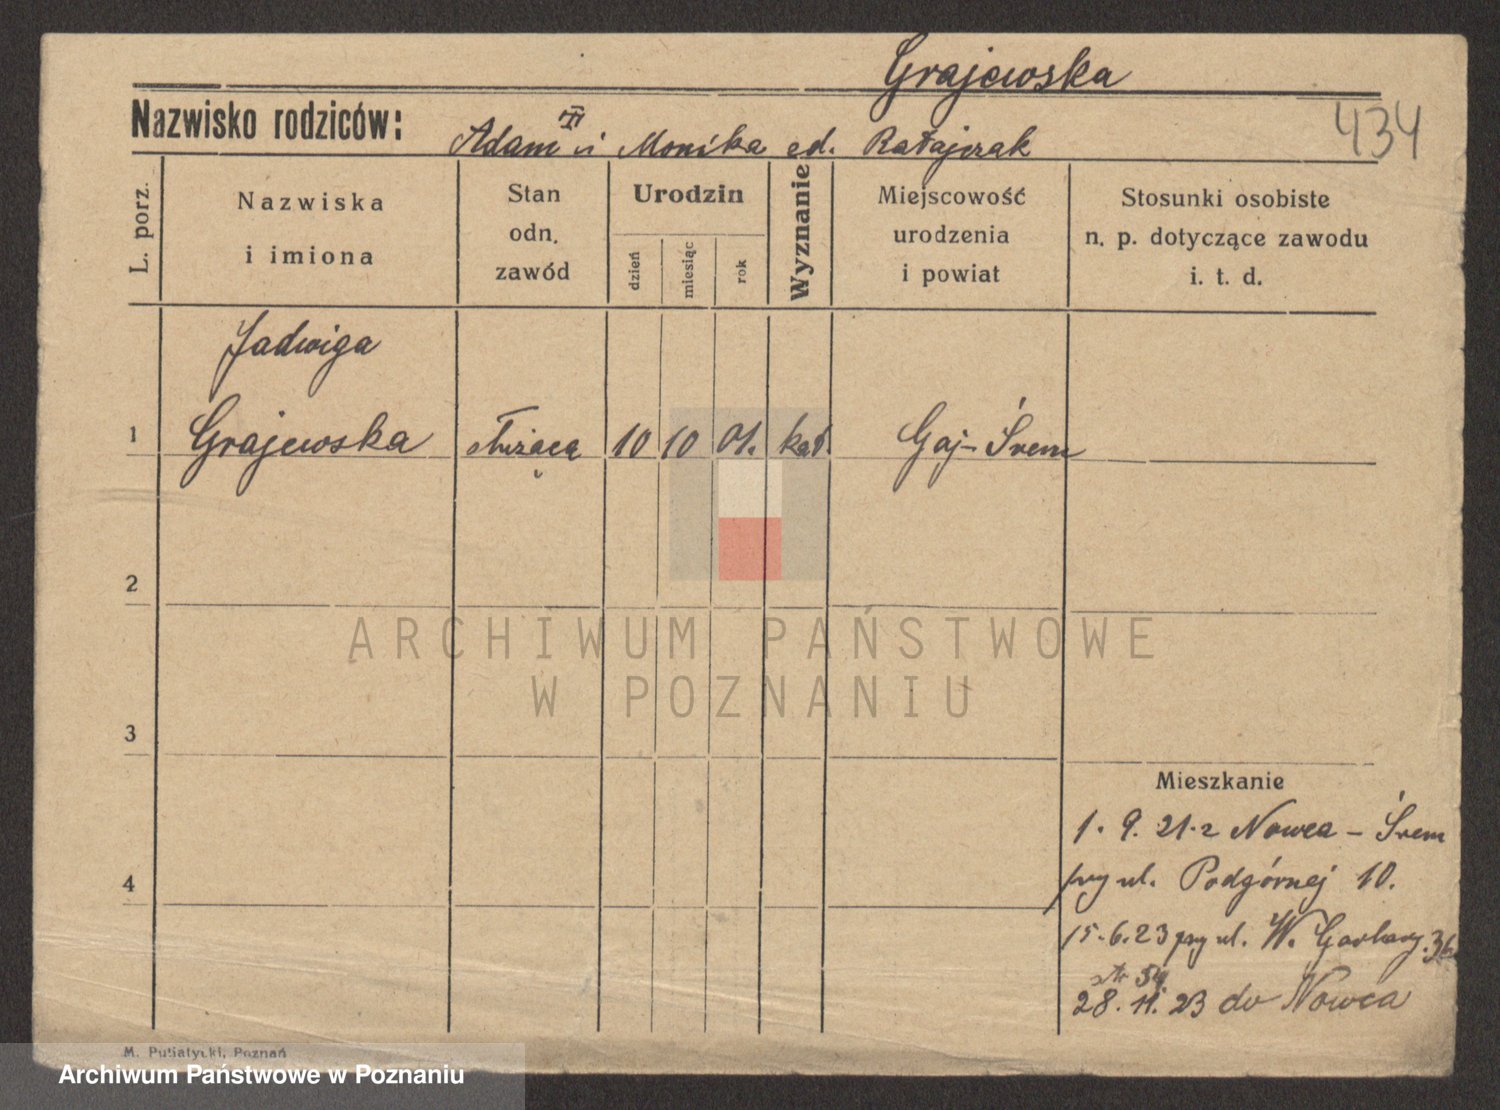 Grajewska
434
Nazwisko rodziców: Adam i Monika ed. Ratajczak
L. porz.
Nazwiska
i imiona
Stan
odn.
zawód
Urodzin
dzień
miesiąc
rok
Wyznanie
Miejscowość
urodzenia
i powiat
Stosunki osobiste
n. p. dotyczące zawodu
i. t. d.
Jadwiga
1 Grajewska służąca 10 10 01. kat. Gaj - Śrem
2
ARCHIWUM PAŃSTWOWE
W POZNANIU
3
Mieszkanie
1. 9. 21. z Nowca - Śrem
4
przy ul. Podgórnej 10.
15. 6. 23 przy ul. W. Garbary 36
54
28. 11. 23 do Nowca
M. Putiatycki, Poznań
Archiwum Państwowe w Poznaniu